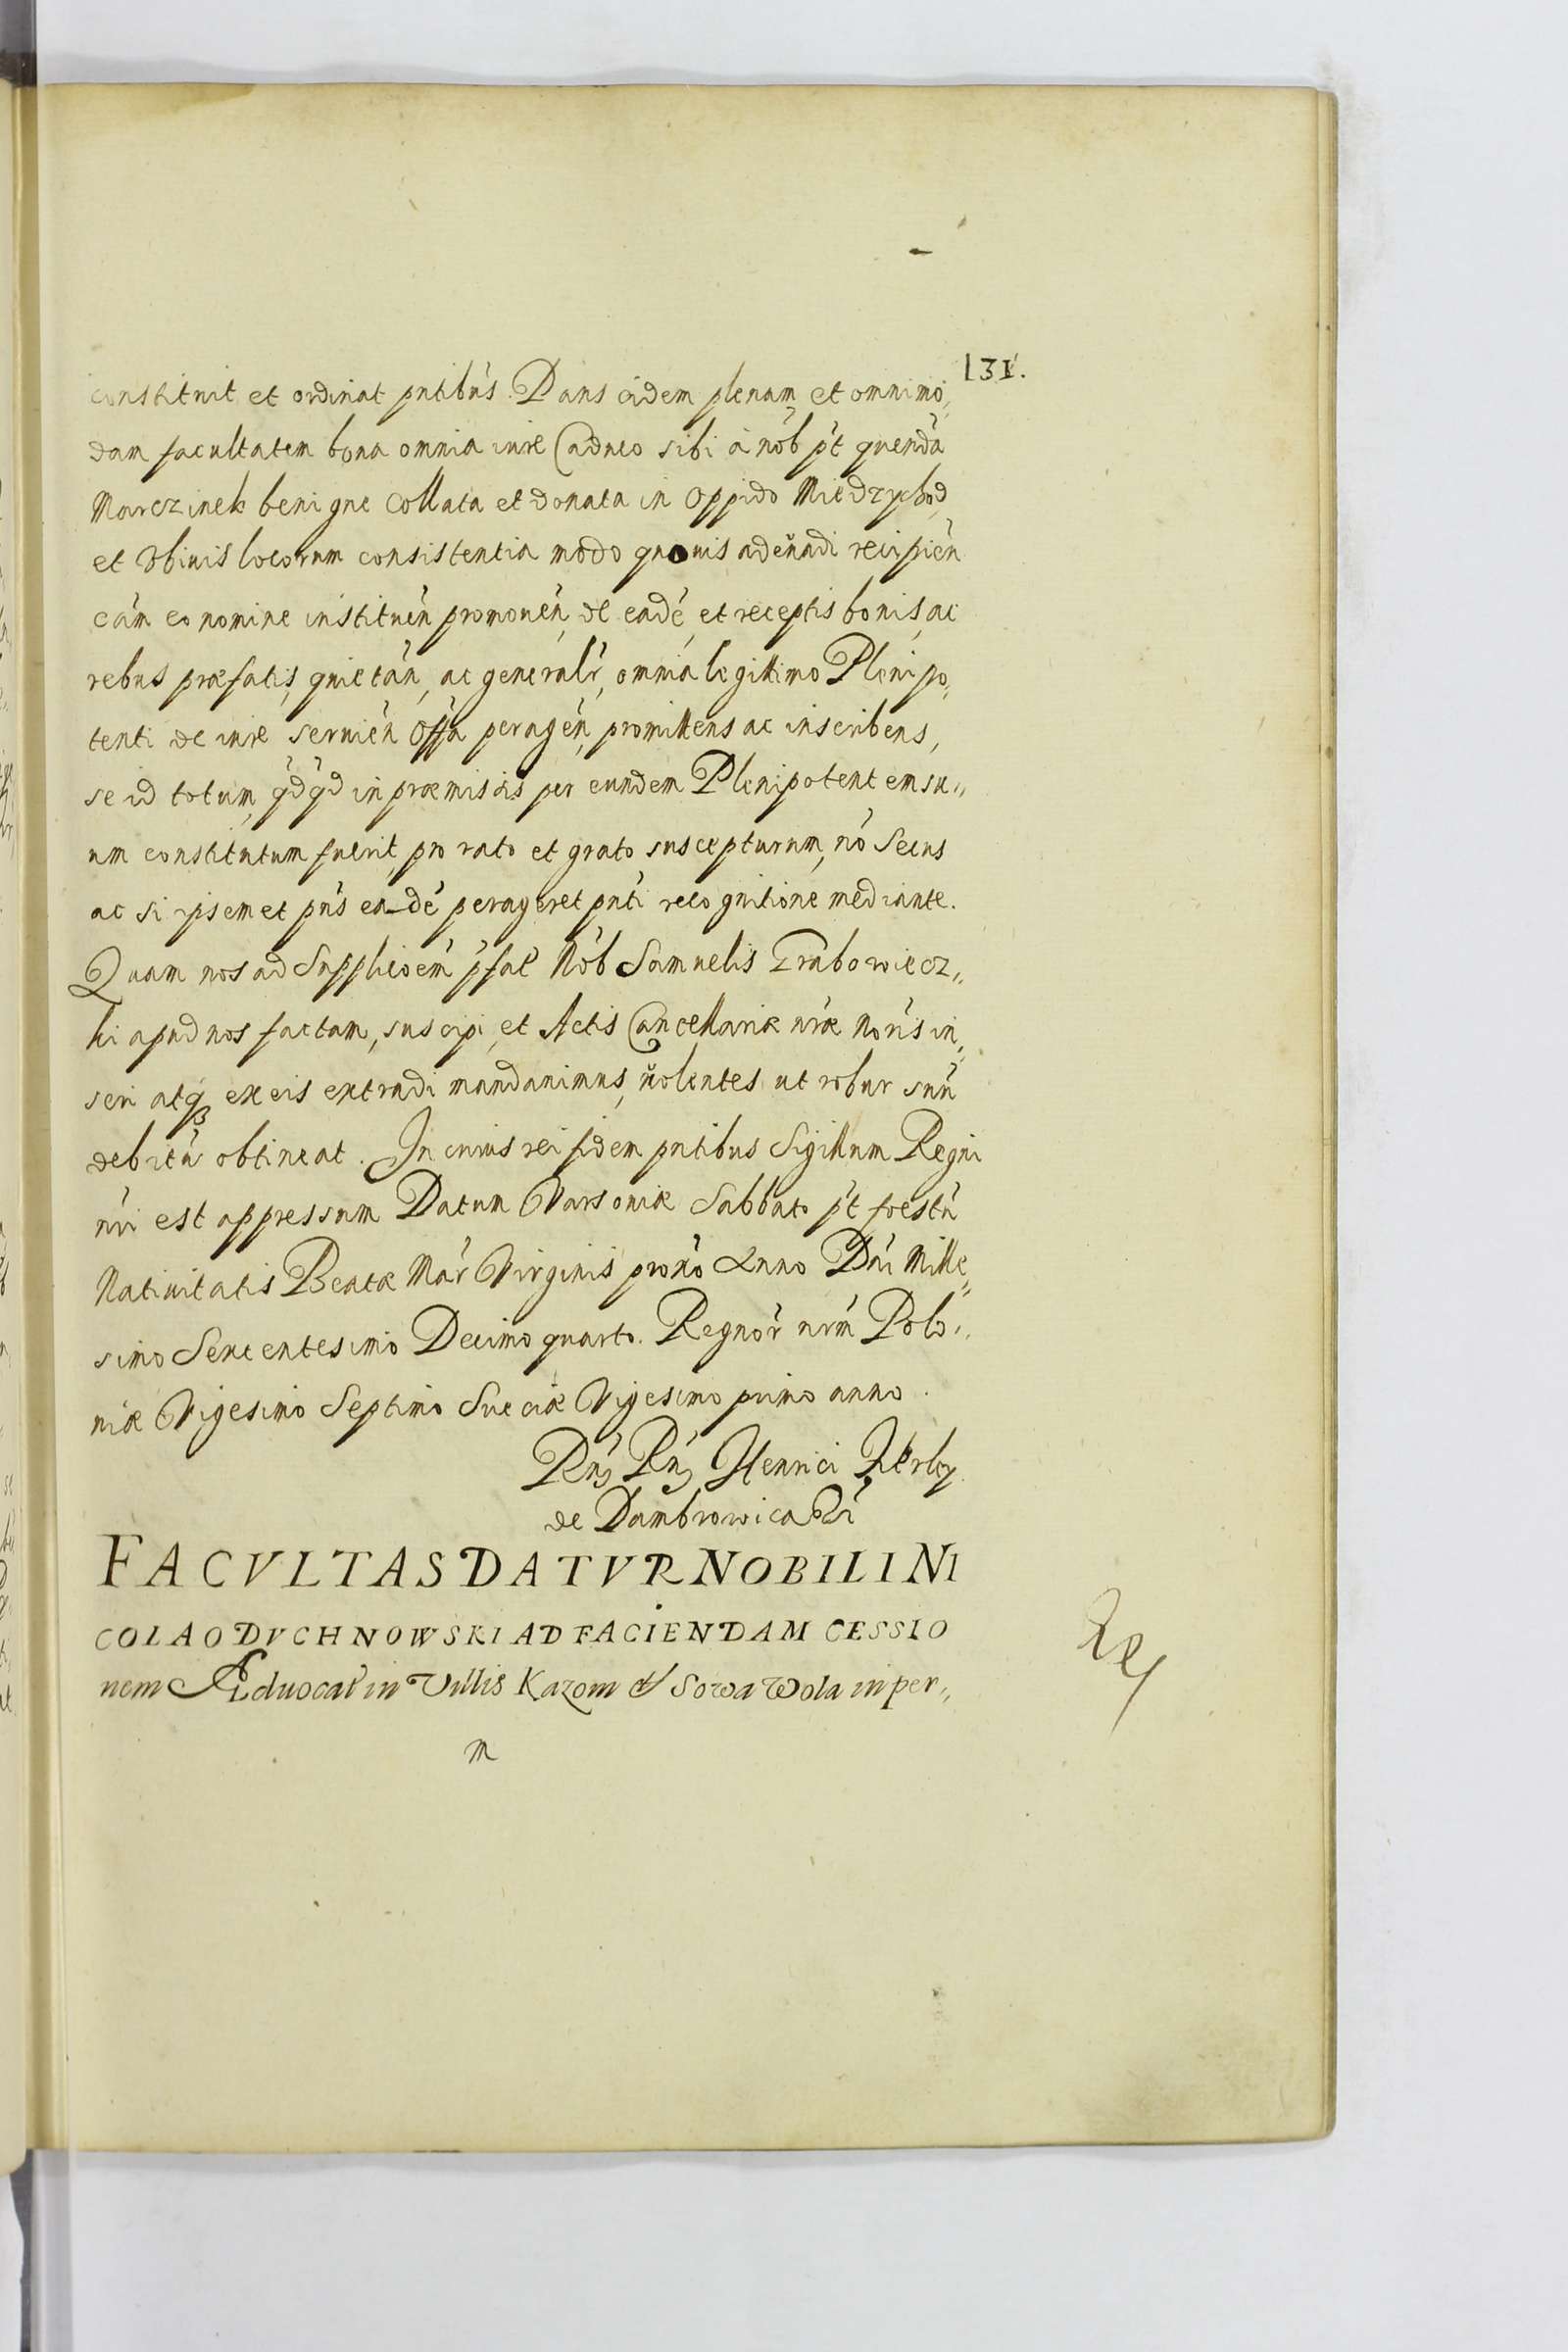 131.
constituit et ordinat pntibus. Dans eidem plenam et omnimo,,
dam facultatem bona omnia iure Caduco sibi à nob pt quendã
Marczinek benigne Collata et donata in Oppido Miedzychod,
et Vbiuis locorum consistentia modo quouis adeundi recipień
cám eo nomine instituén promouén, de eadé, et receptis bonis, ac
rebus præfatis, quietán, ac generalr, omnia legittimo Plenipo,,
tenti de iure seruién Offa peragén, promittens ac inscribens,
se id totum, qdqd in præmissis per eundem Plenipotentem su,,
um constitutum fuerit, pro rato et grato suscepturum, nó Secus
ac si ipsemet pńs ea-dé perageret pnti recognitione mediante.
Quam nos ad Supplicoém pfat Nob Samuelis Grabowiecz,,
ki apud nos factam, suscipi, et Actis Cancellariæ nræ Noris in,,
seri atq3 ex eis extradi mandauimus, volentes ut robur suú
debitú obtineat. In cuius rei fidem pntibus Sigillum Regni
nri est appressum Datum Varsouiæ Sabbato pt foestú
Natiuitatis Beatæ Mar Virginis proxo Anno Dni Mille,,
simo Sexcentesimo Decimo quarto. Regnor nrm Polo,,
niæ Vigesimo Septimo Sueciæ Vigesimo primo anno.
Henrici Firley
de Dambrowica
FACVLTAS DATVR NOBILI NI
COLAO DVCHNOWSKI AD FACIENDAM CESSIO
nem Aduocat in Villis Kazom & Sowa Wola in per,,
m